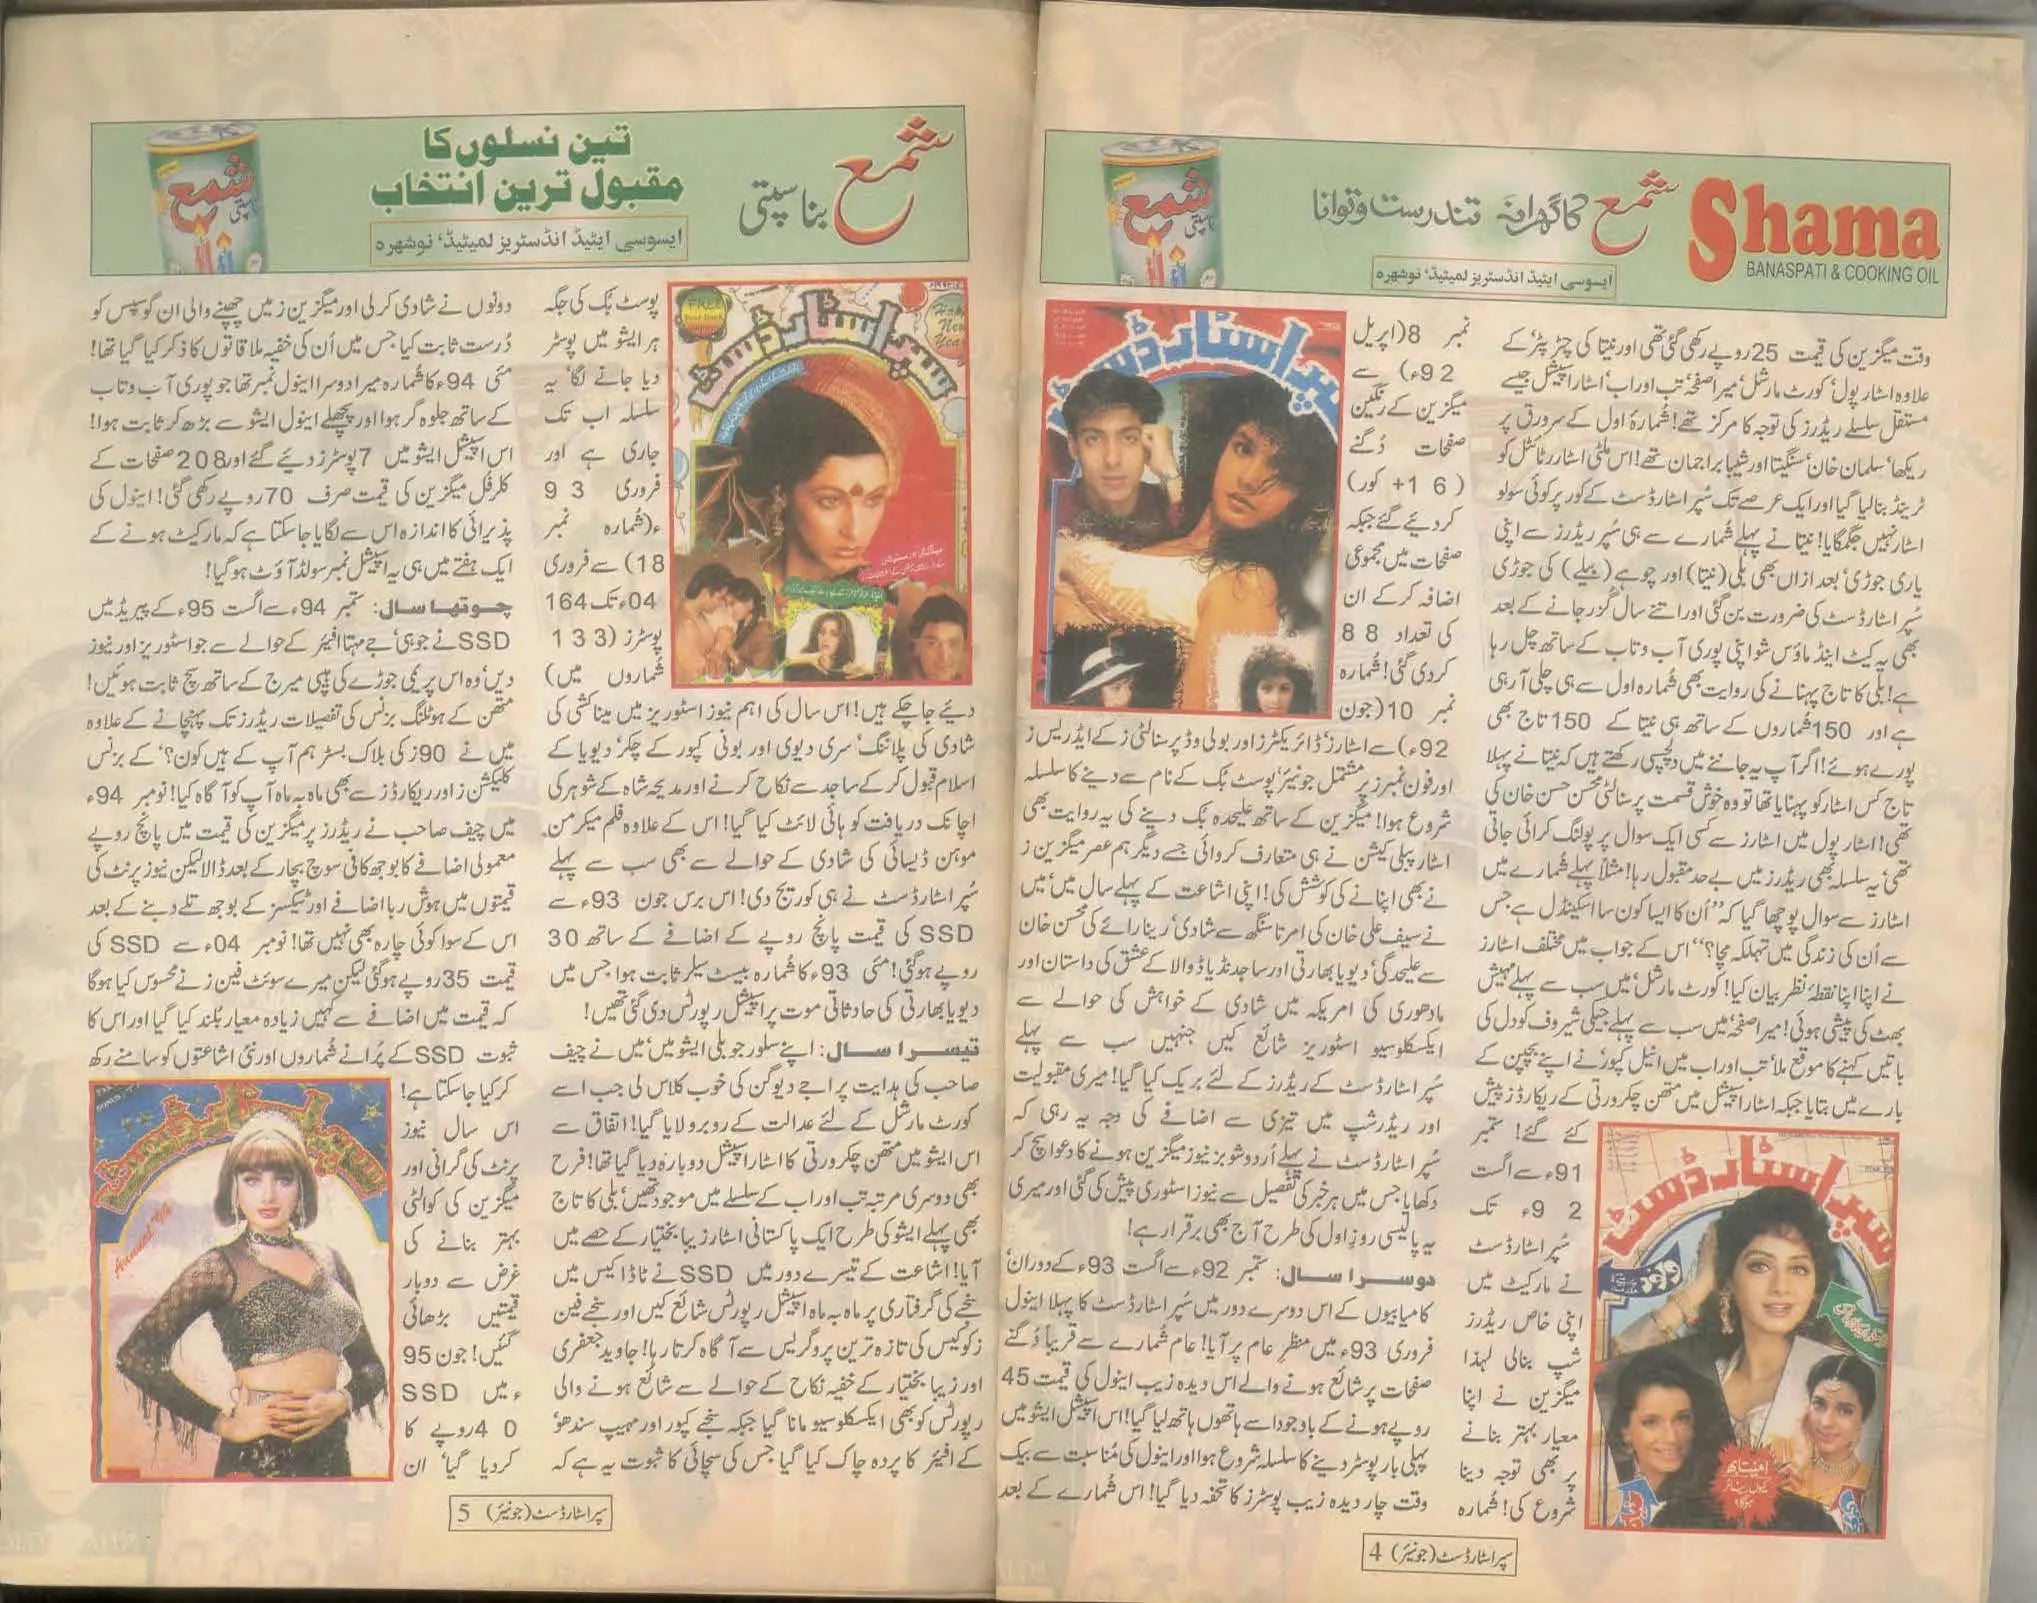 شمع کا گھرانہ تندرست و توانا
ایسوسی ایٹیڈ انڈسٹریز لمیٹیڈ، نوشہرہ
Shama
BANASPATI & COOKING OIL
وقت میگزین کی قیمت 25روپے رکھی گئی تھی اور نیتا کی چٹر پٹر کے
علاوہ اسٹار پول، کورٹ مارشل، میرا صفحہ، تب اور اب، اسٹار اسپیشل جیسے
مستقل سلسلے ریڈرز کی توجہ کا مرکز تھے! شمارہ اول کے سرورق پر
ریکھا، سلمان خان، سنگیتا اور شلپا براجمان تھے! اس ملٹی اسٹارر ٹائٹل کو
ٹرینڈ بنالیا گیا اور ایک عرصے تک سُپر اسٹارڈسٹ کے کور پر کوئی سولو
اسٹار نہیں جگمگایا! نیتا نے پہلے شمارے سے ہی سُپر ریڈرز سے اپنی
یاری جوڑی، بعد ازاں بھی بلی (نیتا) اور چوہے (ببلے) کی جوڑی
سُپر اسٹارڈسٹ کی ضرورت بن گئی اور اتنے سال گزر جانے کے بعد
بھی یہ کیٹ اینڈ ماؤس شو اپنی پوری آب و تاب کے ساتھ چل رہا
ہے! بلی کا تاج پہنانے کی روایت بھی شمارہ اول سے ہی چلی آرہی
ہے اور 150شماروں کے ساتھ ہی نیتا کے 150 تاج بھی
پورے ہوئے! اگر آپ یہ جاننے میں دلچسپی رکھتے ہیں کہ نیتا نے پہلا
تاج کس اسٹار کو پہنایا تھا تو وہ خوش قسمت پرسنالٹی محسن حسن خان کی
تھی! اسٹار پول میں اسٹارز سے کسی ایک سوال پر پولنگ کرائی جاتی
تھی، یہ سلسلہ بھی ریڈرز میں بے حد مقبول رہا! مثلاً پہلے شمارے میں
اسٹارز سے سوال پوچھا گیا کہ ”اُن کا ایسا کون سا اسکینڈل ہے جس
سے اُن کی زندگی میں تہلکہ مچا؟“ اس کے جواب میں مختلف اسٹارز
نے اپنا اپنا نقطۂ نظر بیان کیا! کورٹ مارشل، میں سب سے پہلے مہیش
بھٹ کی پیشی ہوئی! میرا صفحہ، میں سب سے پہلے جیکی شیروف کو دل کی
باتیں کہنے کا موقع ملا، تب اور اب میں انیل کپور نے اپنے بچپن کے
بارے میں بتایا جبکہ اسٹار اسپیشل میں متھن چکرورتی کے ریکارڈز پیش
کئے گئے! ستمبر
91ء سے اگست
92ء تک
سُپر اسٹارڈسٹ
نے مارکیٹ میں
اپنی خاص ریڈرز
شپ بنالی لہٰذا
میگزین نے اپنا
معیار بہتر بنانے
پر بھی توجہ دینا
شروع کی! شمارہ
سپر اسٹار ڈسٹ
سپر اسٹار ڈسٹ
نمبر 8(اپریل
92ء) سے
میگزین کے رنگین
صفحات دُگنے
(16+ کور)
کردیئے گئے جبکہ
صفحات میں مجموعی
اضافہ کرکے ان
کی تعداد 88
کردی گئی! شمارہ
نمبر 10(جون
92ء) سے اسٹارز، ڈائریکٹرز اور بولی وڈ پرسنالٹی ز کے ایڈریس ز
اور فون نمبرز پر مشتمل جونیئر، پوسٹ بُک کے نام سے دینے کا سلسلہ
شروع ہوا! میگزین کے ساتھ علیحدہ بُک دینے کی یہ روایت بھی
اسٹار پبلی کیشن نے ہی متعارف کروائی جسے دیگر ہم عصر میگزین ز
نے بھی اپنانے کی کوشش کی! اپنی اشاعت کے پہلے سال میں، میں
نے سیف علی خان کی امرتا سنگھ سے شادی، رینا رائے کی محسن خان
سے علیحدگی، دیویا بھارتی اور ساجد نڈیاڈوالا کے عشق کی داستان اور
مادھوری کی امریکہ میں شادی کے خواہش کی حوالے سے
ایکسکلوسیو اسٹوریز شائع کیں جنہیں سب سے پہلے
سُپر اسٹارڈسٹ کے ریڈرز کے لئے بریک کیا گیا! میری مقبولیت
اور ریڈرشپ میں تیزی سے اضافے کی وجہ یہ رہی کہ
سُپر اسٹارڈسٹ نے پہلے اُردو شوبز نیوز میگزین ہونے کا دعوا سچ کر
دکھایا جس میں ہر خبر کی تفصیل سے نیوز اسٹوری پیش کی گئی اور میری
یہ پالیسی روز اول کی طرح آج بھی برقرار ہے!
دوسرا سال: ستمبر 92ء سے اگست 93ء کے دوران،
کامیابیوں کے اس دوسرے دور میں سُپر اسٹارڈسٹ کا پہلا اینول
فروری 93ء میں منظر عام پر آیا! عام شمارے سے قریباً دُگنے
صفحات پر شائع ہونے والے اس دیدہ زیب اینول کی قیمت 45
روپے ہونے کے باوجود اسے ہاتھوں ہاتھ لیا گیا! اس اسپیشل ایشو میں
پہلی بار پوسٹر دینے کا سلسلہ شروع ہوا اور اینول کی مناسبت سے بیک
وقت چار دیدہ زیب پوسٹرز کا تحفہ دیا گیا! اس شمارے کے بعد
سپر اسٹارڈسٹ (جونیئر) 4
شمع
بناسپتی
تین نسلوں کا
مقبول ترین انتخاب
ایسوسی ایٹیڈ انڈسٹریز لمیٹیڈ، نوشہرہ
سپر اسٹار ڈسٹ
پوسٹ بُک کی جگہ
ہر ایشو میں پوسٹر
دیا جانے لگا، یہ
سلسلہ اب تک
جاری ہے اور
فروری 93
ء(شمارہ نمبر
18) سے فروری
04ء تک 164
پوسٹرز (133
شماروں میں)
دیئے جاچکے ہیں! اس سال کی اہم نیوز اسٹوریز میں میناکشی کی
شادی کی پلاننگ، سری دیوی اور بونی کپور کے چکر، دیویا کے
اسلام قبول کرکے ساجد سے نکاح کرنے اور مدیحہ شاہ کے شوہر کی
اچانک دریافت کو ہائی لائٹ کیا گیا! اس کے علاوہ فلم میکر من
موہن ڈیسائی کی شادی کے حوالے سے بھی سب سے پہلے
سُپر اسٹارڈسٹ نے ہی کوریج دی! اس برس جون 93ء سے
SSD کی قیمت پانچ روپے کے اضافے کے ساتھ 30
روپے ہوگئی! مئی 93ء کا شمارہ بیسٹ سیلر ثابت ہوا جس میں
دیویا بھارتی کی حادثاتی موت پر اسپیشل رپورٹس دی گئی تھیں!
تیسرا سال: اپنے سلور جوبلی ایشو میں، میں نے چیف
صاحب کی ہدایت پر اجے دیوگن کی خوب کلاس لی جب اسے
کورٹ مارشل کے لئے عدالت کے روبرو لایا گیا! اتفاق سے
اس ایشو میں متھن چکرورتی کا اسٹار اسپیشل دوبارہ دیا گیا تھا! فرح
بھی دوسری مرتبہ تب اور اب کے سلسلے میں موجود تھیں، بلی کا تاج
بھی پہلے ایشو کی طرح ایک پاکستانی اسٹار زیبا بختیار کے حصے میں
آیا! اشاعت کے تیسرے دور میں SSD نے ٹاڈا کیس میں
سنجے کی گرفتاری پر ماہ بہ ماہ اسپیشل رپورٹس شائع کیں اور سنجے فین
ز کو کیس کی تازہ ترین پروگریس سے آگاہ کرتا رہا! جاوید جعفری
اور زیبا بختیار کے خفیہ نکاح کے حوالے سے شائع ہونے والی
رپورٹس کو بھی ایکسکلوسیو مانا گیا جبکہ سنجے کپور اور مہیپ سندھو
کے افیئر کا پردہ چاک کیا گیا جس کی سچائی کا ثبوت یہ ہے کہ
دونوں نے شادی کرلی اور میگزین ز میں چھپنے والی ان گوسپس کو
دُرست ثابت کیا جس میں اُن کی خفیہ ملاقاتوں کا ذکر کیا گیا تھا!
مئی 94ء کا شمارہ میرا دوسرا اینول نمبر تھا جو پوری آب و تاب
کے ساتھ جلوہ گر ہوا اور پچھلے اینول ایشو سے بڑھ کر ثابت ہوا!
اس اسپیشل ایشو میں 7پوسٹرز دیئے گئے اور 208صفحات کے
کلرفل میگزین کی قیمت صرف 70روپے رکھی گئی! اینول کی
پذیرائی کا اندازہ اس سے لگایا جاسکتا ہے کہ مارکیٹ ہونے کے
ایک ہفتے میں ہی یہ اسپیشل نمبر سولڈ آؤٹ ہوگیا!
چوتھا سال: ستمبر 94ء سے اگست 95ء کے پیریڈ میں
SSD نے جوہی، جے مہتا افیئر کے حوالے سے جو اسٹوریز اور نیوز
دیں، وہ اس پریمی جوڑے کی ہیپی میرج کے ساتھ سچ ثابت ہوئیں!
متھن کے ہوٹلنگ بزنس کی تفصیلات ریڈرز تک پہنچانے کے علاوہ
میں نے 90ز کی بلاک بسٹر ہم آپ کے ہیں کون؟، کے بزنس
کلیکشن ز اور ریکارڈز سے بھی ماہ بہ ماہ آپ کو آگاہ کیا! نومبر 94ء
میں چیف صاحب نے ریڈرز پر میگزین کی قیمت میں پانچ روپے
معمولی اضافے کا بوجھ کافی سوچ بچار کے بعد ڈالا لیکن نیوز پرنٹ کی
قیمتوں میں ہوش رُبا اضافے اور ٹیکسز کے بوجھ تلے دبنے کے بعد
اس کے سوا کوئی چارہ بھی نہیں تھا! نومبر 04ء سے SSD کی
قیمت 35روپے ہوگئی لیکن میرے سوئٹ فین ز نے محسوس کیا ہوگا
کہ قیمت میں اضافے سے کہیں زیادہ معیار بُلند کیا گیا اور اس کا
ثبوت SSD کے پُرانے شماروں اور نئی اشاعتوں کو سامنے رکھ
کر کیا جاسکتا ہے!
اس سال نیوز
پرنٹ کی گرانی اور
میگزین کی کوالٹی
بہتر بنانے کی
غرض سے دوبار
قیمتیں بڑھائی
گئیں! جون 95
ء میں SSD
40روپے کا
کردیا گیا، ان
سپر اسٹارڈسٹ (جونیئر) 5